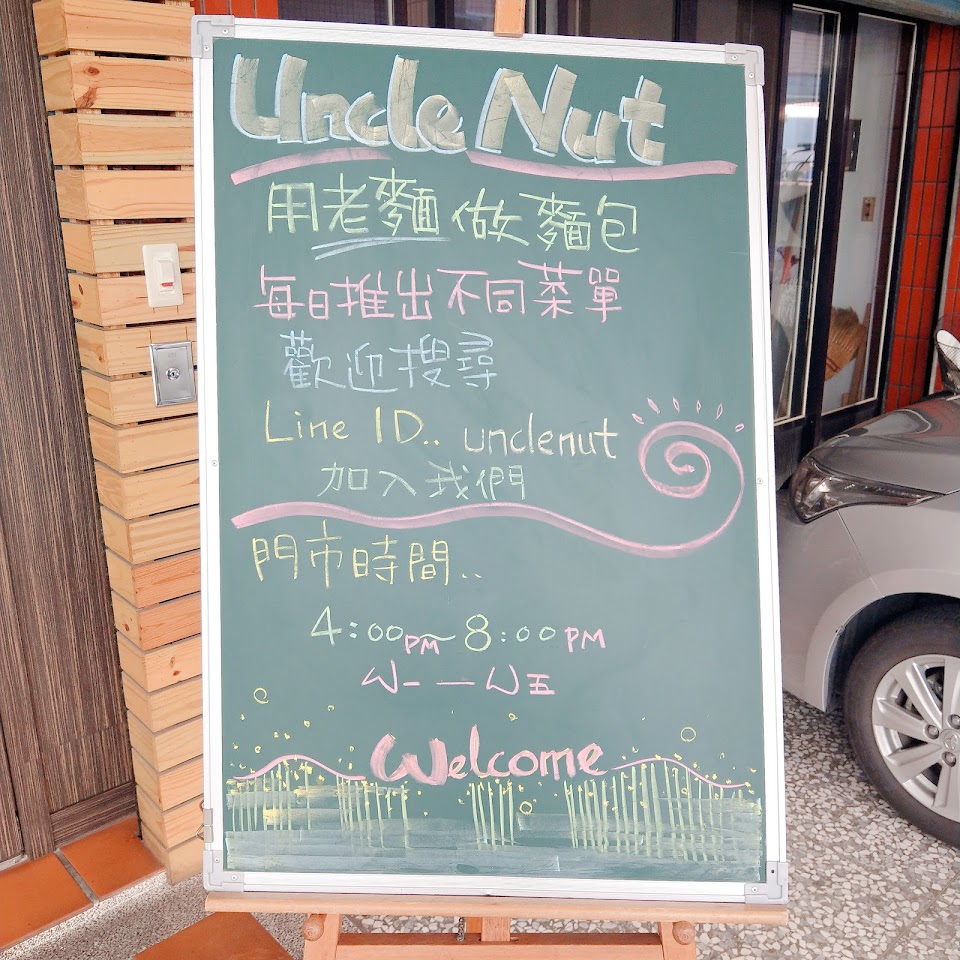 Uncle Nut
用老麵做麵包
每日推出不同菜單
歡迎搜尋
Line ID.. unclenut
加入我們
門市時間..
4:00PM~8:00PM
W一 — W五
Welcome